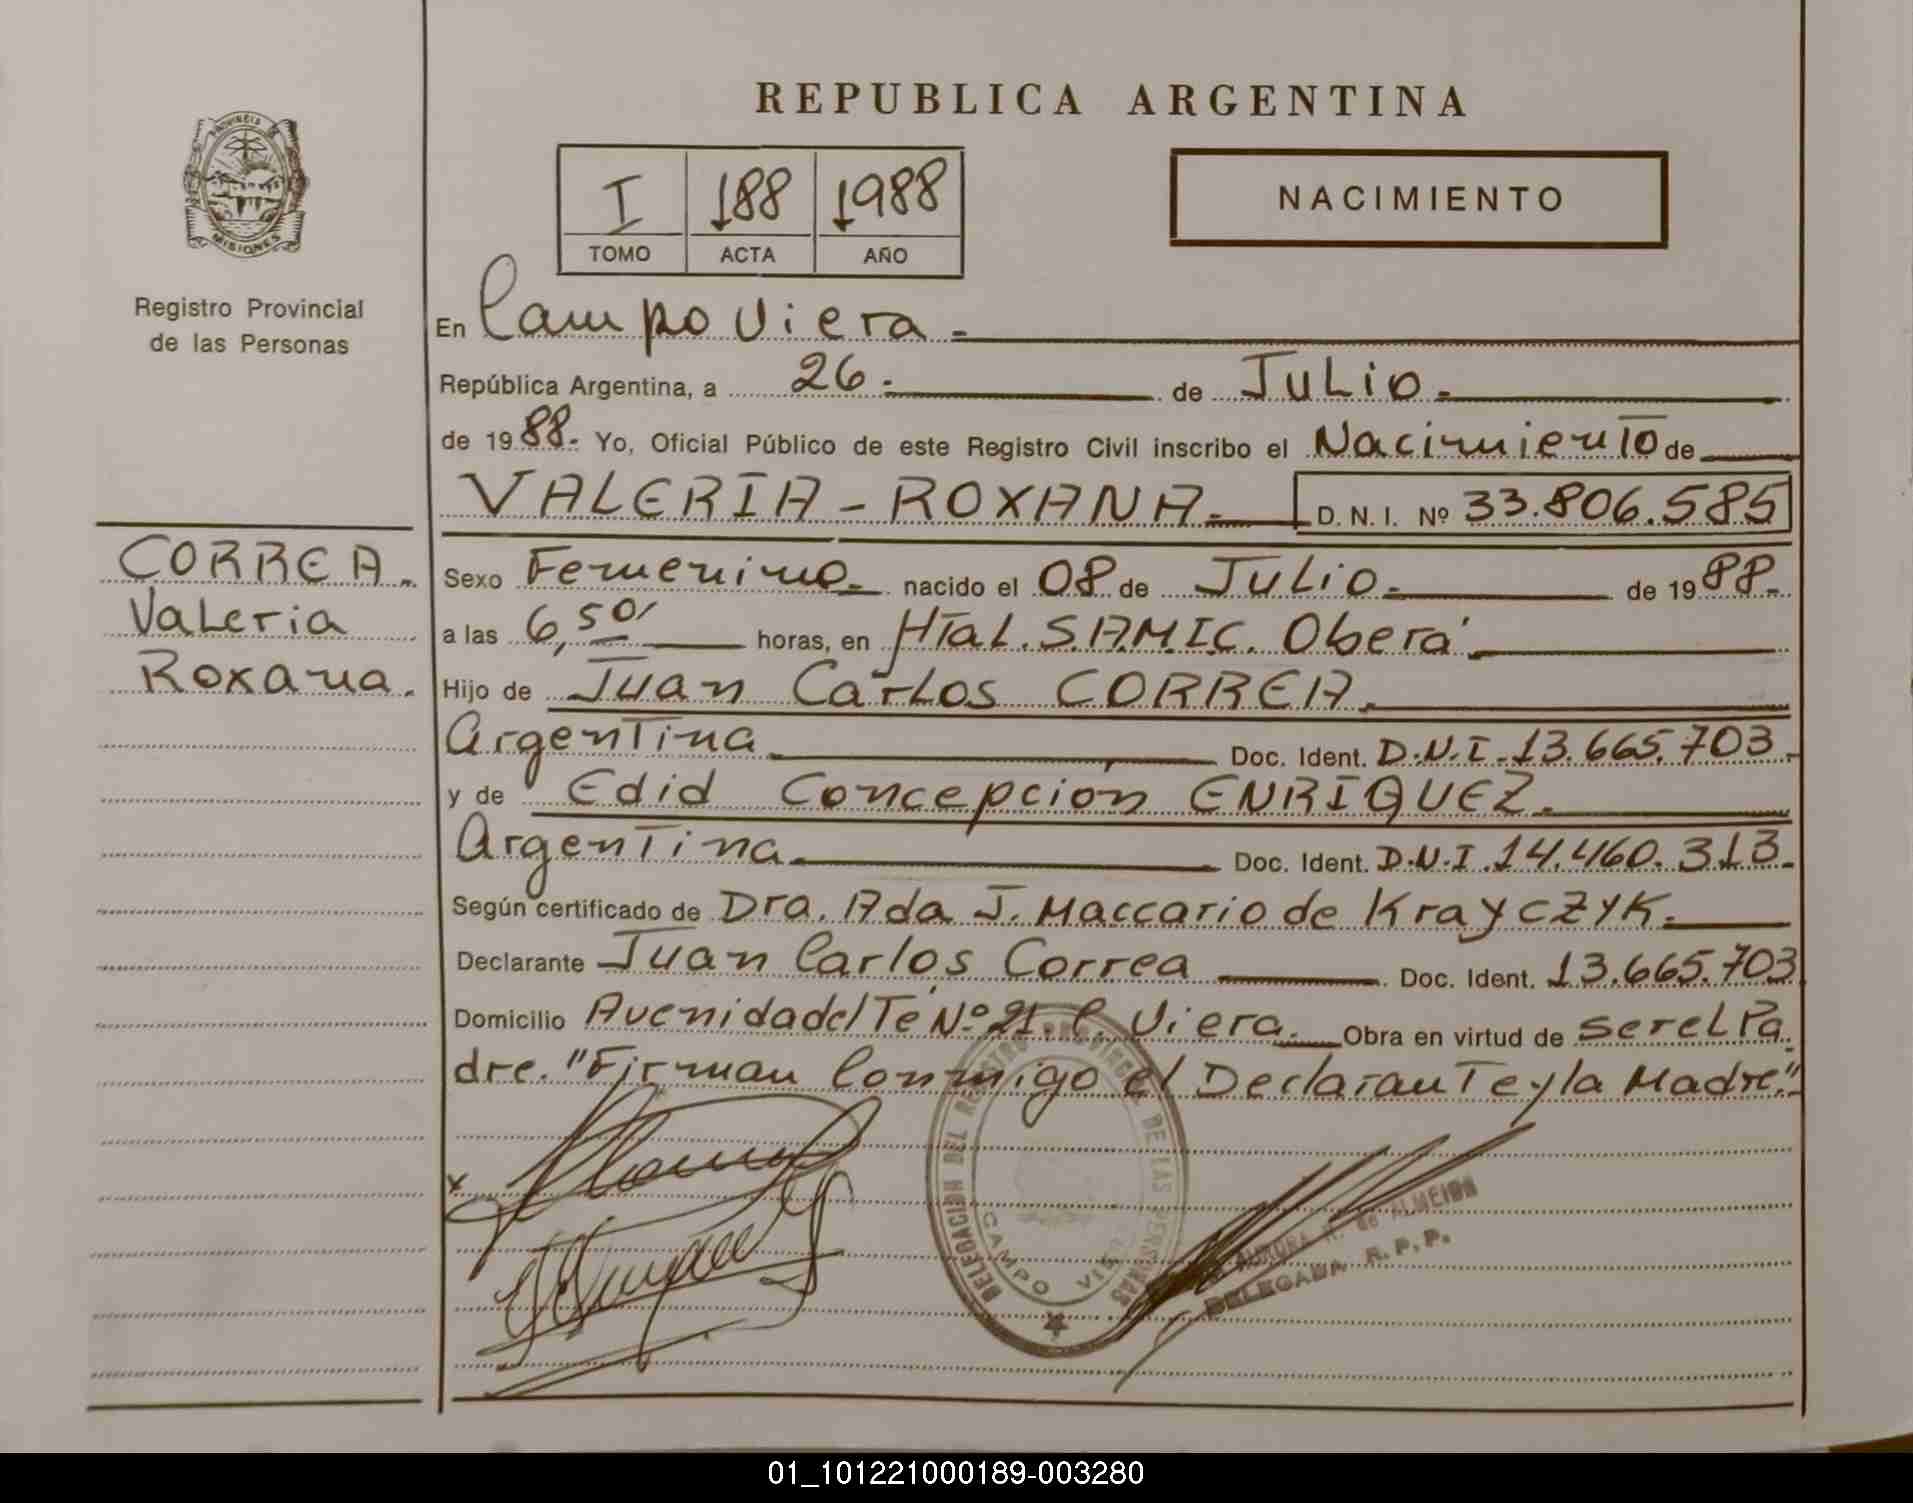 REPUBLICA ARGENTINA
PROVINCIA DE
MISIONES
Registro Provincial
de las Personas
I 188 1988
TOMO ACTA AÑO
NACIMIENTO
En Campo Viera.-
República Argentina, a 26.- de Julio.-
de 1988.- Yo, Oficial Público de este Registro Civil inscribo el Nacimiento de
VALERIA - ROXANA.- D. N. I. Nº 33.806.585
CORREA.
Valeria
Roxana.
Sexo Femenino.- nacido el 08 de Julio.- de 1988.-
a las 6,50' horas, en HTal. S.A.M.I.C. Oberá.-
Hijo de Juan Carlos CORREA.
Argentina Doc. Ident. D.N.I. 13.665.703.-
y de Edid Concepción ENRIQUEZ.-
Argentina.- Doc. Ident. D.N.I. 14.460.313.-
Según certificado de Dra. Ada J. Maccario de KrayczyK.-
Declarante Juan Carlos Correa Doc. Ident. 13.665.703
Domicilio Avenida del Té Nº 21 C. Viera. Obra en virtud de ser el Pa
dre. "Firman Conmigo el Declarante y la Madre."
DELEGACION DEL REGISTRO PROVINCIAL DE LAS PERSONAS
CAMPO VIERA
AURORA R. de ALMEIDA
DELEGADA R. P. P.
01_101221000189-003280